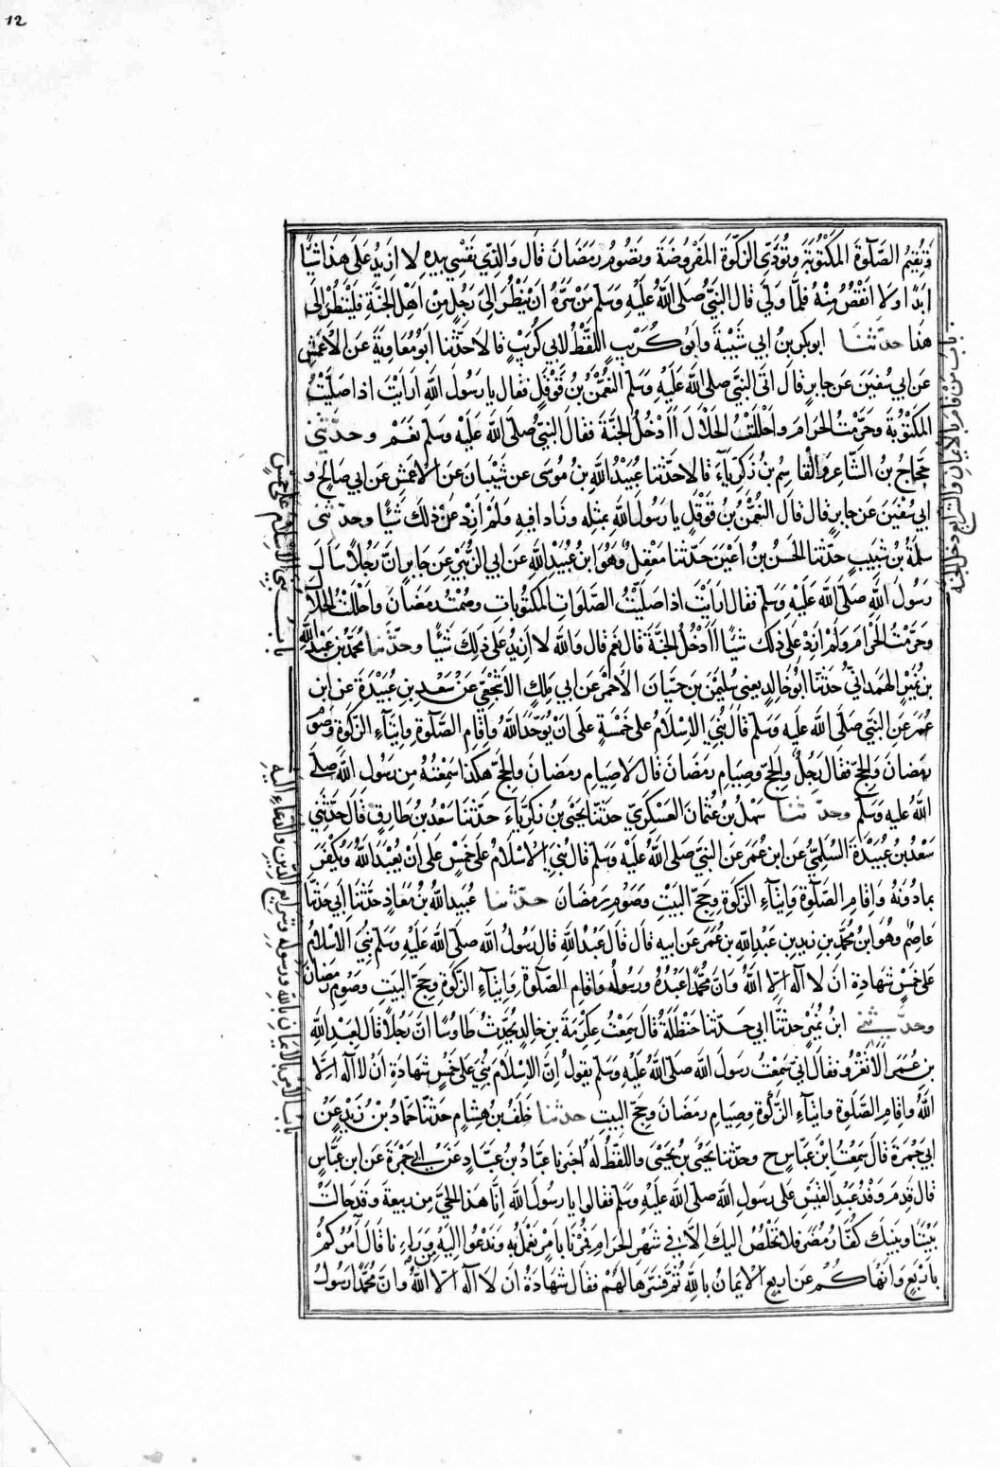 12
وتقيم الصلوة المكتوبة وتؤدي الزكوة المفروضة وتصوم رمضان قال والذي نفسي بيده لا ازيد على هذا شيئا
ابدا ولا انقص منه فلما ولى قال النبي صلى الله عليه وسلم من سره ان ينظر الى رجل من اهل الجنة فلينظر الى
هذا حدثنا ابو بكر بن ابي شيبة وابو كريب اللفظ لابي كريب قالا حدثنا ابو معاوية عن الاعمش
عن ابي سفين عن جابر قال اتى النبي صلى الله عليه وسلم النعمن بن قوقل فقال يا رسول الله ارايت اذا صليت
المكتوبة وحرمت الحرام واحللت الحلال أادخل الجنة فقال النبي صلى الله عليه وسلم نعم وحدثني
حجاج بن الشاعر والقاسم بن زكرياء قالا حدثنا عبيد الله بن موسى عن شيبان عن الاعمش عن ابي صالح و
ابي سفين عن جابر قال قال النعمن بن قوقل يا رسول الله بمثله وزاد فيه ولم ازد عن ذلك شئا وحدثنى
سلمة بن شبيب حدثنا الحسن بن اعين حدثنا معقل وهو ابن عبيد الله عن ابي الزبير عن جابر ان رجلا سال
رسول الله صلى الله عليه وسلم فقال ارايت اذا صليت الصلوات المكتوبات وصمت رمضان واحللت الحلال
وحرمت الحرام ولم ازد على ذلك شيئا أادخل الجنة قال نعم قال والله لا ازيد على ذلك شيئا وحدثنا محمد بن عبد الله
بن نمير الهمداني حدثنا ابو خالد يعني سليمن بن حيان الاحمر عن ابي ملك الاشجعي عن سعد بن عبيدة عن ابن
عمر عن النبي صلى الله عليه وسلم قال بني الاسلام على خمسة على ان يوحد الله واقام الصلوة وايتاء الزكوة وصوم
رمضان والحج فقال رجل الحج وصيام رمضان قال لا صيام رمضان والحج هكذا سمعته من رسول الله صلى
الله عليه وسلم وحدثنا سهل بن عثمان العسكري حدثنا يحيى بن زكرياء حدثنا سعد بن طارق قال حدثني
سعد بن عبيدة السلمي عن ابن عمر عن النبي صلى الله عليه وسلم قال بني الاسلام على خمس على ان يعبد الله ويكفر
بما دونه واقام الصلوة وايتاء الزكوة وحج البيت وصوم رمضان حدثنا عبيد الله بن معاذ حدثنا ابي حدثنا
عاصم وهو ابن محمد بن زيد بن عبد الله بن عمر عن ابيه قال قال عبد الله قال رسول الله صلى الله عليه وسلم بني الاسلام
على خمس شهادة ان لا اله الا الله وان محمدا عبده ورسوله واقام الصلوة وايتاء الزكوة وحج البيت وصوم رمضان
وحدثني ابن نمير حدثنا ابي حدثنا حنظلة قال سمعت عكرمة بن خالد يحدث طاوسا ان رجلا قال لعبد الله
بن عمر الا تغزو فقال اني سمعت رسول الله صلى الله عليه وسلم يقول ان الاسلام بني على خمس شهادة ان لا اله الا
الله واقام الصلوة وايتاء الزكوة وصيام رمضان وحج البيت حدثنا خلف بن هشام حدثنا حماد بن زيد عن
ابي جمرة قال سمعت ابن عباس ح وحدثنا يحيى بن يحيى واللفظ له اخبرنا عباد بن عباد عن ابي جمرة عن ابن عباس
قال قدم وفد عبد القيس على رسول الله صلى الله عليه وسلم فقالوا يا رسول الله انا هذا الحي من ربيعة وقد حالت
بيننا وبينك كفار مضر فلا نخلص اليك الا في شهر الحرام فمرنا بامر نعمل به وندعوا اليه من وراءنا قال آمركم
باربع وانهاكم عن اربع الايمان بالله ثم فسرها لهم فقال شهادة ان لا اله الا الله وان محمدا رسول
باب من قام بالايمان والشرايع دخل الجنة
باب بني الاسلام على خمس
باب الامر بالايمان بالله ورسوله وشرايع الدين والدعاء اليه